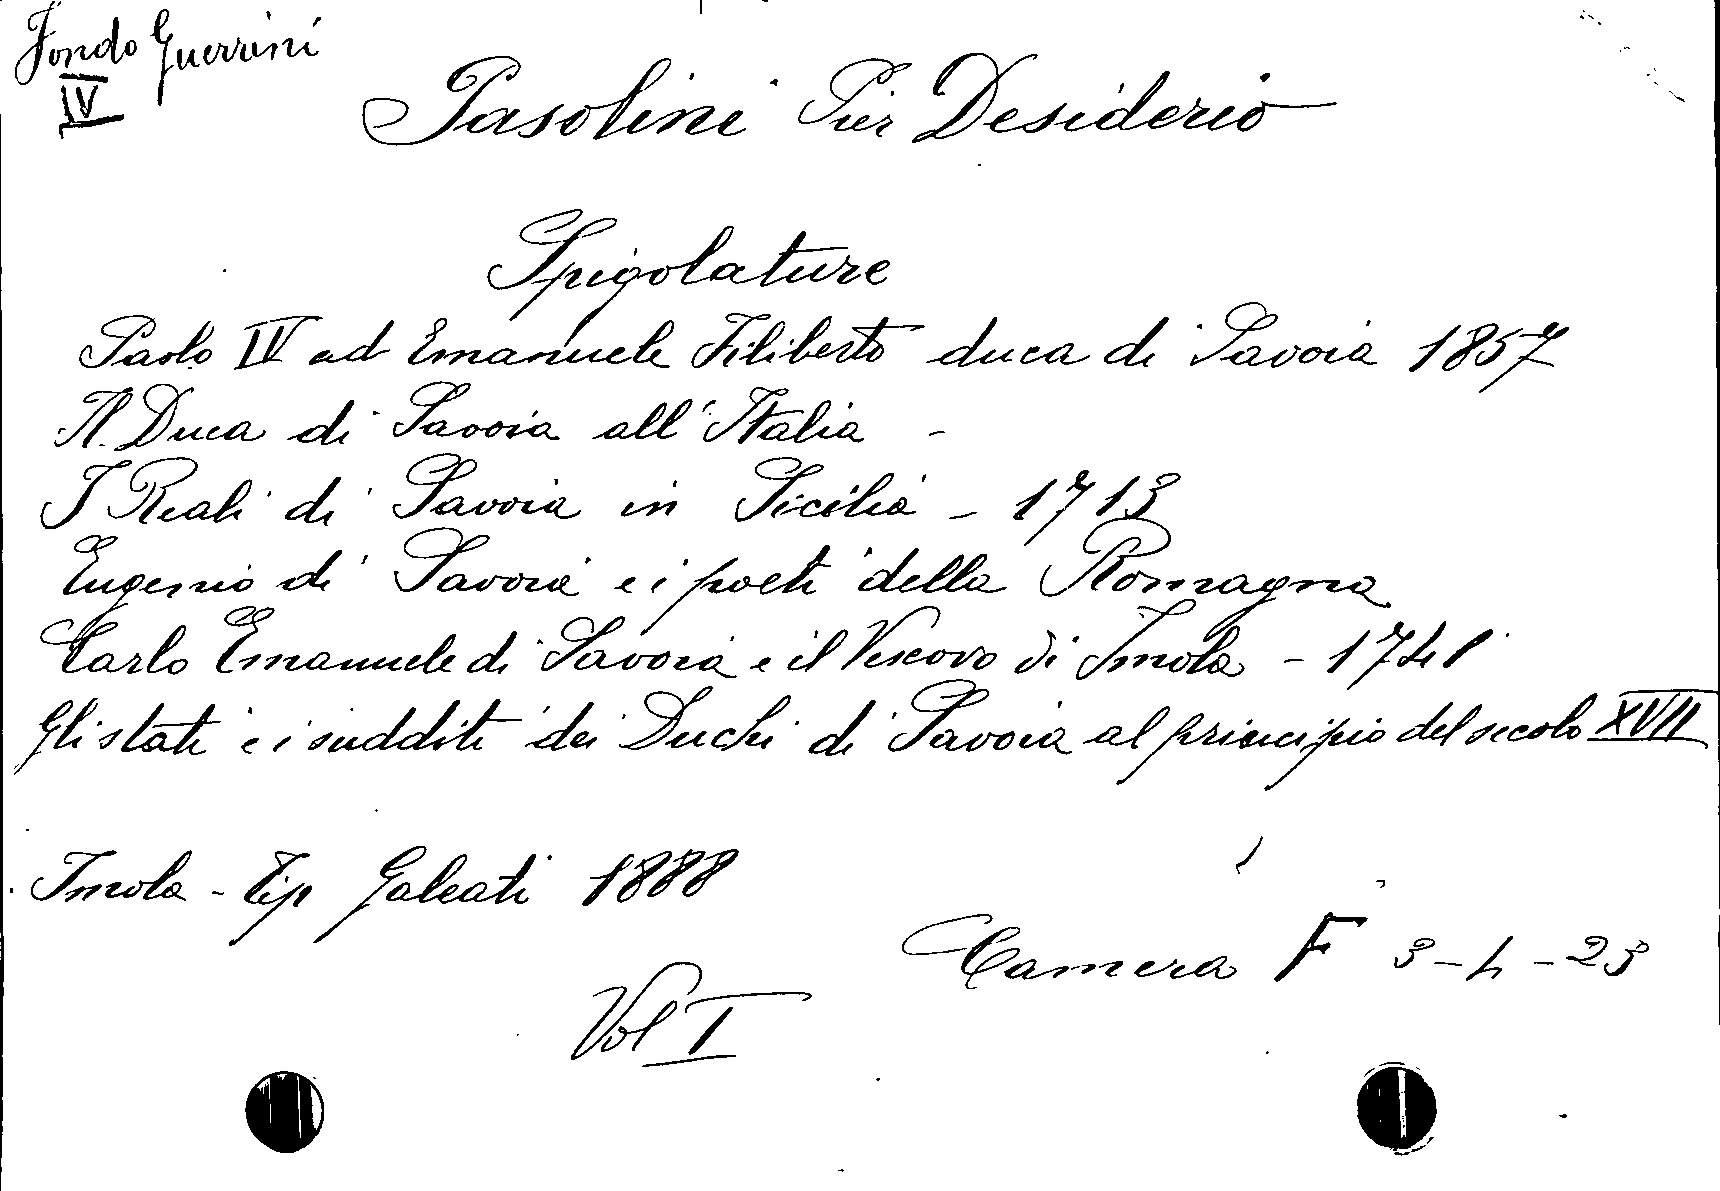 Fondo Guerrini
IV
Pasolini Pier Desiderio
Spigolature
Paolo IV ad Emanuele Filiberto duca di Savoia 1857
Il Duca di Savoia all'Italia -
I Reali di Savoia in Sicilia - 1713
Eugenio di Savoia e i poeti della Romagna
Carlo Emanuele di Savoia e il Vescovo di Imola - 1741
Gli stati e i sudditi dei Duchi di Savoia al principio del secolo XVII
Imola - Tip Galeati 1888
Camera F 3-4-23
Vol I